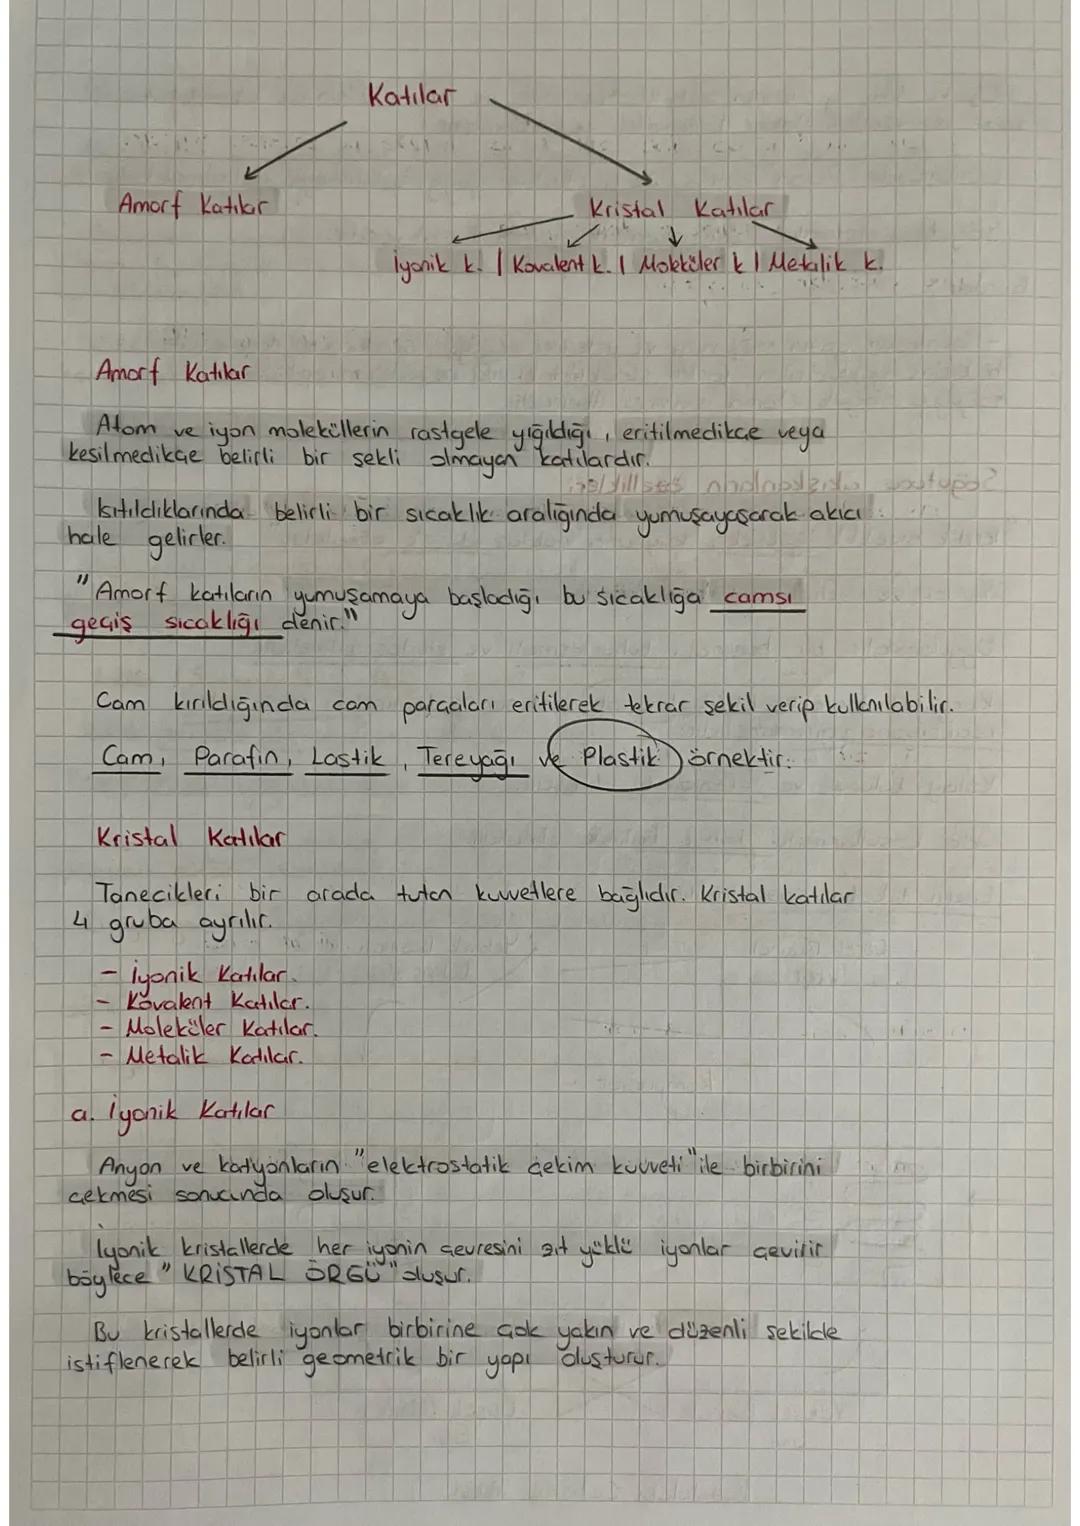 Katılar
Amorf Katılar
Kristal Katılar
İyonik k. | Kovalent k. | Moleküler k | Metalik k.
Amorf Katılar
Atom ve iyon moleküllerin rastgele yığıldığı, eritilmedikçe veya
kesilmedikçe belirli bir şekli olmayan katılardır.
Isıtıldıklarında belirli bir sıcaklık aralığında yumuşayaşarak akıcı
hale gelirler.
"Amorf katıların yumuşamaya başladığı bu sıcaklığa camsı
geçiş sıcaklığı denir."
Cam kırıldığında cam parçaları eritilerek tekrar şekil verip kullanılabilir.
Cam, Parafin, Lastik, Tereyağı ve Plastik örnektir.
Kristal Katılar
Tanecikleri bir arada tutan kuvvetlere bağlıdır. Kristal katılar
4 gruba ayrılır.
- İyonik Katılar.
- Kovalent Katılar.
- Moleküler Katılar.
- Metalik Katılar.
a. İyonik Katılar
Anyon ve katyonların "elektrostatik çekim kuvveti" ile birbirini
çekmesi sonucunda oluşur.
İyonik kristallerde her iyonin çevresini zıt yüklü iyonlar çevirir
böylece "KRİSTAL ÖRGÜ" oluşur.
Bu kristallerde iyonlar birbirine çok yakın ve düzenli şekilde
istiflenerek belirli geometrik bir yapı oluşturur.